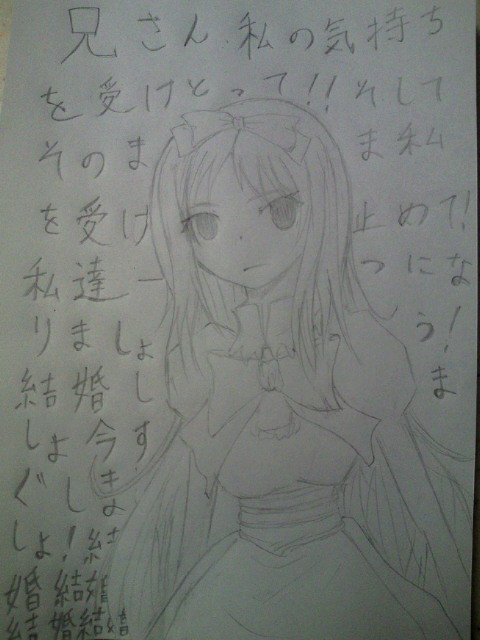 兄さん 私の気持ち
を受けとって!! そして
そのま ま私
を受け 止めて!
私達一 つにな
りましょ う!
結婚し ま
しょ今す
ぐしま
しょ!結
婚結婚
結婚結婚